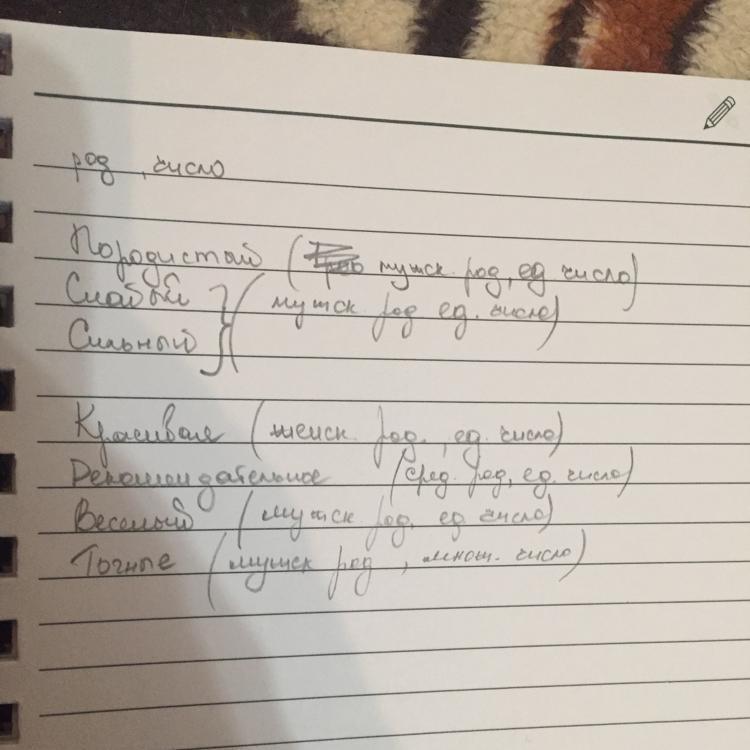 род, число
Породистый ( мужск. род, ед. число)
Слабый } (мужск. род ед. число)
Сильный
Красивая (женск. род., ед. число)
Рекомендательное (сред. род, ед. число)
Веселый (мужск. род, ед. число)
Точные (мужск род, множ. число)